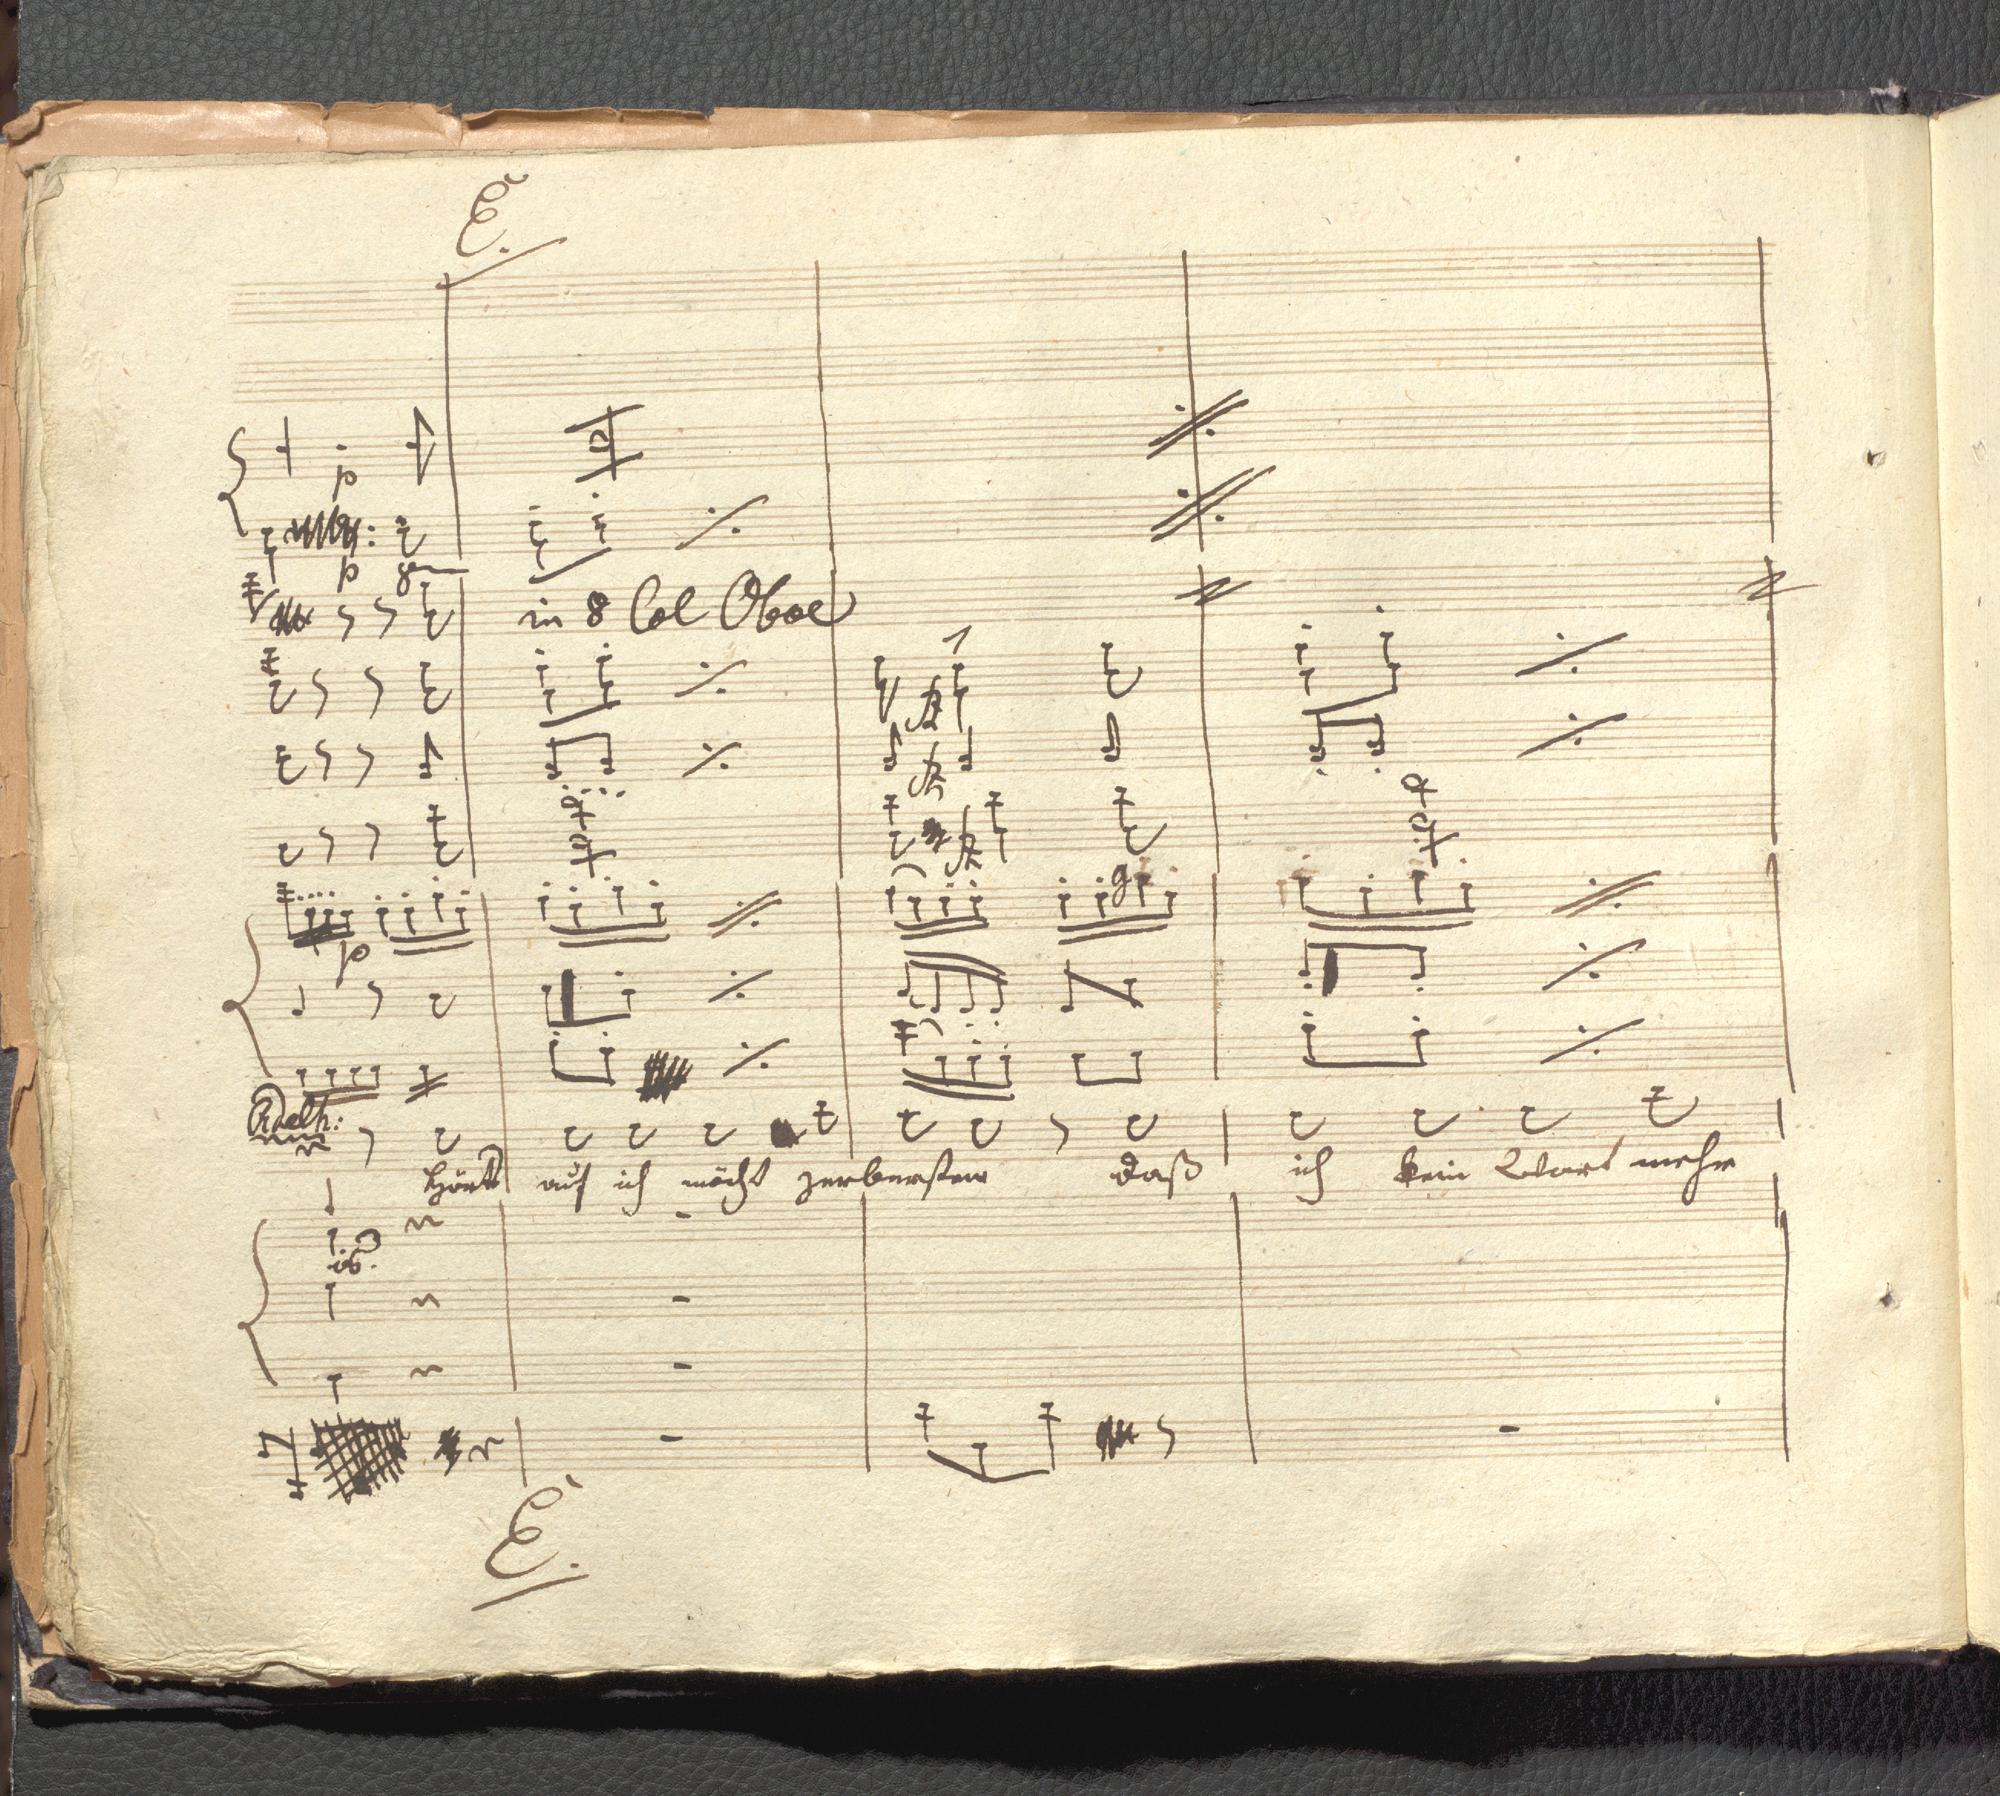 E.
p
p 8
in 8 Col Oboe
p
Adelh:
Hört auf ich möcht zerbersten daß ich kein Wort mehr
E.